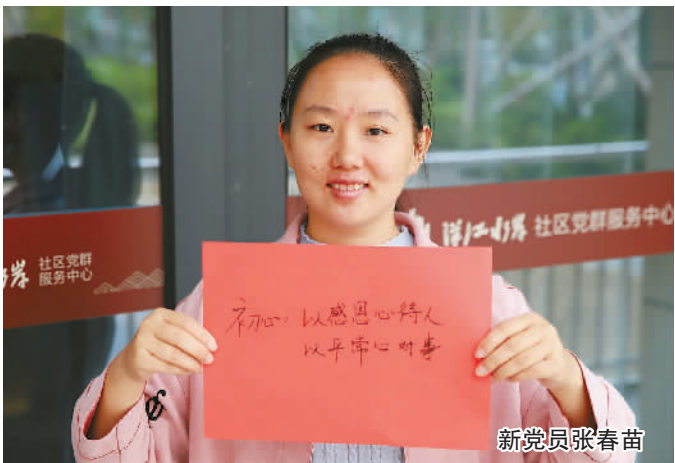 社区党群
服务中心
社区党群服务中心
初心：以感恩心待人
以平常心对事
新党员张春苗